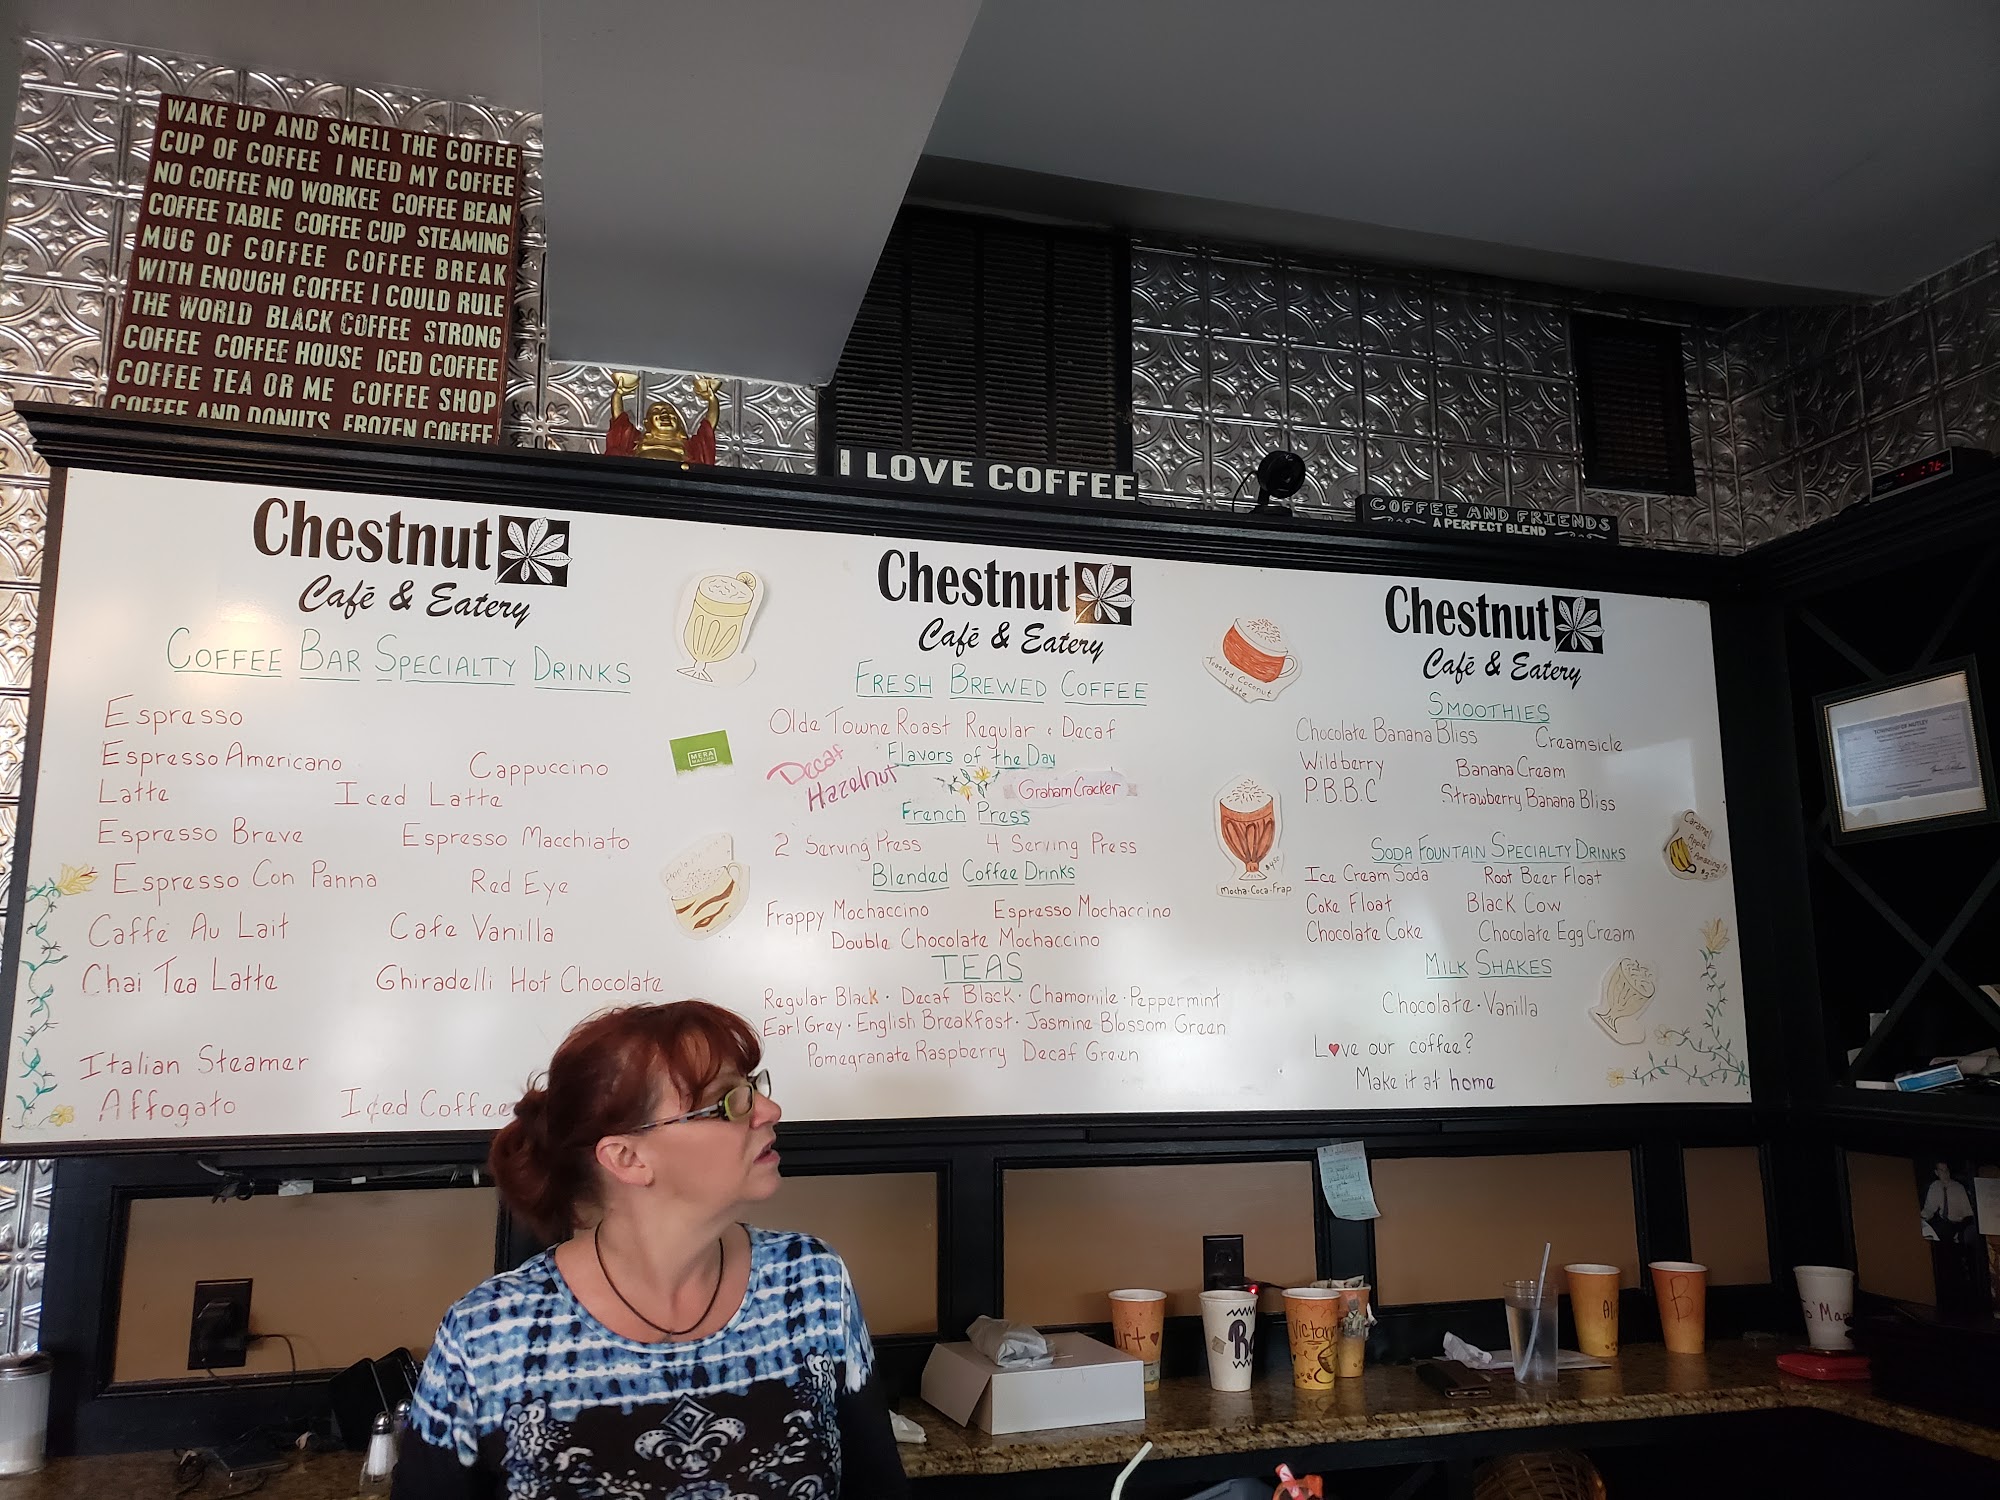 WAKE UP AND SMELL THE COFFEE
CUP OF COFFEE I NEED MY COFFEE
NO COFFEE NO WORKEE COFFEE BEAN
COFFEE TABLE COFFEE CUP STEAMING
MUG OF COFFEE COFFEE BREAK
WITH ENOUGH COFFEE I COULD RULE
THE WORLD BLACK COFFEE STRONG
COFFEE COFFEE HOUSE ICED COFFEE
COFFEE TEA OR ME COFFEE SHOP
COFFEE AND DONUTS FROZEN COFFEE
I LOVE COFFEE
COFFEE AND FRIENDS
A PERFECT BLEND
Chestnut
Café & Eatery
COFFEE BAR SPECIALTY DRINKS
Espresso
Espresso Americano Cappuccino
Latte Iced Latte
Espresso Breve Espresso Macchiato
Espresso Con Panna Red Eye
Caffé Au Lait Cafe Vanilla
Chai Tea Latte Ghiradelli Hot Chocolate
Italian Steamer
Affogato Iced Coffee
MERA
MATCHA
Chestnut
Café & Eatery
FRESH BREWED COFFEE
Olde Towne Roast Regular • Decaf
Flavors of the Day
Decaf
Hazelnut
Graham Cracker
French Press
2 Serving Press 4 Serving Press
Blended Coffee Drinks
Frappy Mochaccino Espresso Mochaccino
Double Chocolate Mochaccino
TEAS
Regular Black • Decaf Black • Chamomile • Peppermint
Earl Grey • English Breakfast • Jasmine Blossom Green
Pomegranate Raspberry Decaf Green
Toasted Coconut
Latte
$4.50
Mocha-Coca-Frap
Chestnut
Café & Eatery
SMOOTHIES
Chocolate Banana Bliss Creamsicle
Wildberry Banana Cream
P.B.B.C Strawberry Banana Bliss
SODA FOUNTAIN SPECIALTY DRINKS
Ice Cream Soda Root Beer Float
Coke Float Black Cow
Chocolate Coke Chocolate Egg Cream
MILK SHAKES
Chocolate • Vanilla
L♥ve our coffee?
Make it at home
Caramel
Apple
Amazing
TOWNSHIP OF NUTLEY
Victor
B